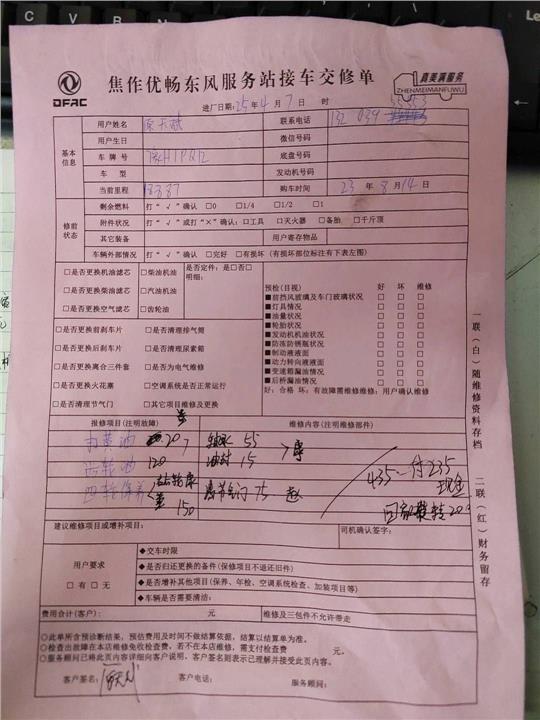 DFAC
焦作优畅东风服务站接车交修单
真美满服务
ZHENMEIMANFUWU
进厂日期：25年4月7日 时
基本信息
用户姓名
联系电话 132 039
用户生日 微信号码
车牌号 底盘号码
车型 发动机号码
当前里程 购车时间 23年8月14日
修前状态
剩余燃料 打“√”确认 □0 □1/4 □1/2 □1
附件状况 打“√”或打“×”确认：□工具 □灭火器 □备胎 □千斤顶
其它装备 用户寄存物品
车辆外部情况 打“√”确认 □完好 □有损坏（有损坏部位标注有下表左图）
□是否更换机油滤芯 □柴油机油 是否定件：是□否□
明细：
□是否更换柴油滤芯 □汽油机油
□是否更换空气滤芯 □齿轮油
□是否更换前刹车片 □是否清理排气筒
□是否更换后刹车片 □是否清理尿素箱
□是否更换离合三件套 □是否为电气维修
□是否更换火花塞 □空调系统是否正常运行
□是否清理节气门 □其它项目维修及更换
预检（目视） 好 坏 维修
■前挡风玻璃及车门玻璃状况 □ □ □
■灯具情况 □ □ □
■油量状况 □ □ □
■轮胎状况 □ □ □
■发动机机油状况 □ □ □
■防冻防锈瓶状况 □ □ □
■制动液液面 □ □ □
■动力转向液液面 □ □ □
■变速箱漏油情况 □ □ □
■后桥漏油情况 □ □ □
好：合格 坏：有故障需维修维修：用户确认维修
报修项目（注明故障） 维修内容（注明维修部件）
打黄油 20 55
齿轮油 120 油封 15
四轮保养 150 75 赵
435 付235
现金
建议维修项目或增补项目： 司机确认签字：
用户要求
□有 □无
◆交车时限
◆是否归还更换的备件（保修项目不退还旧件）
◆是否增补其他项目（保养、年检、空调系统检查、加装项目等）
◆车辆是否需要清洁：
费用合计（客户）： 元 维修及三包件不允许带走
○此单所含预诊断结果，预估费用及时间不做结算依据，结算以结算单为准。
○检查出故障在本店维修免收检查费。若不在本店维修，需支付检查费 元。
○服务顾问已将此页内容详细向客户说明，客户签名则表示已理解并接受此页内容。
客户签名： 客户电话： 服务顾问：
一联（白）随维修资料存档
二联（红）财务留存